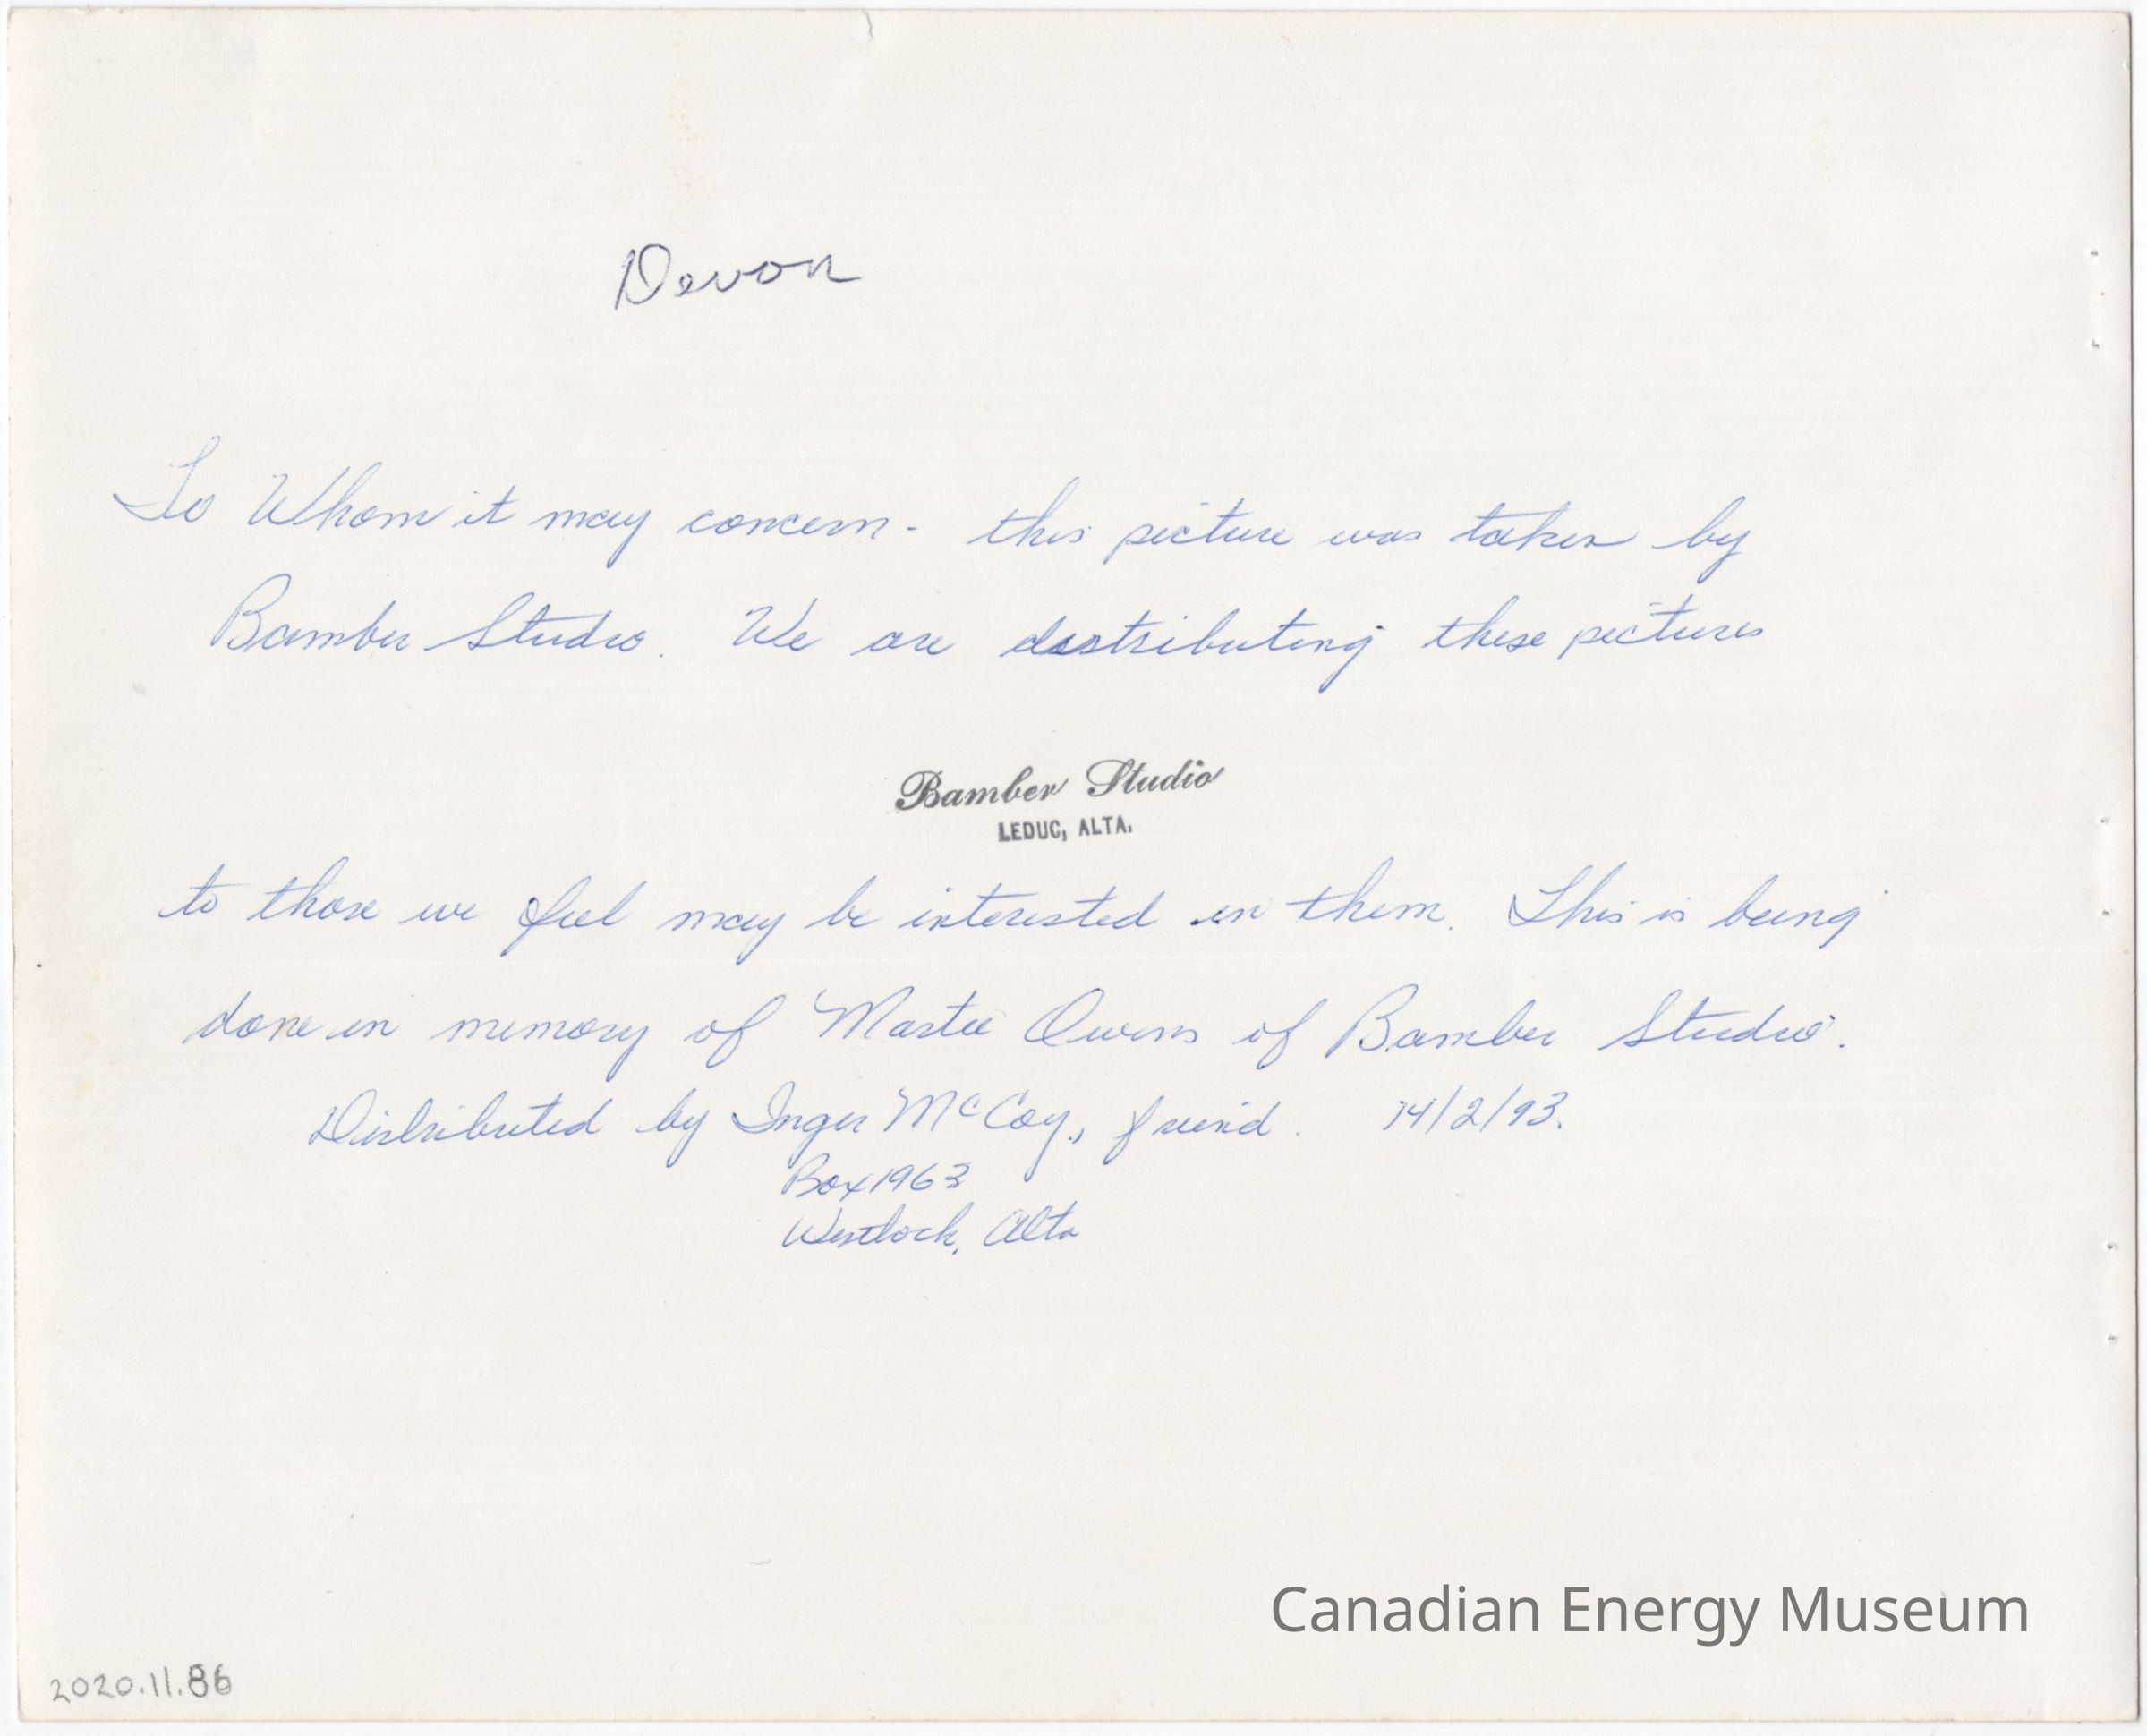 Devon
To Whom it may concern - this picture was taken by
Bamber Studio. We are distributing these pictures
Bamber Studio
LEDUC, ALTA.
to those we feel may be interested in them. This is being
done in memory of Martee Owens of Bamber Studio.
Distributed by Inger McCoy, friend. 14/2/93.
Box 1963
Westlock, Alta
Canadian Energy Museum
2020.11.86